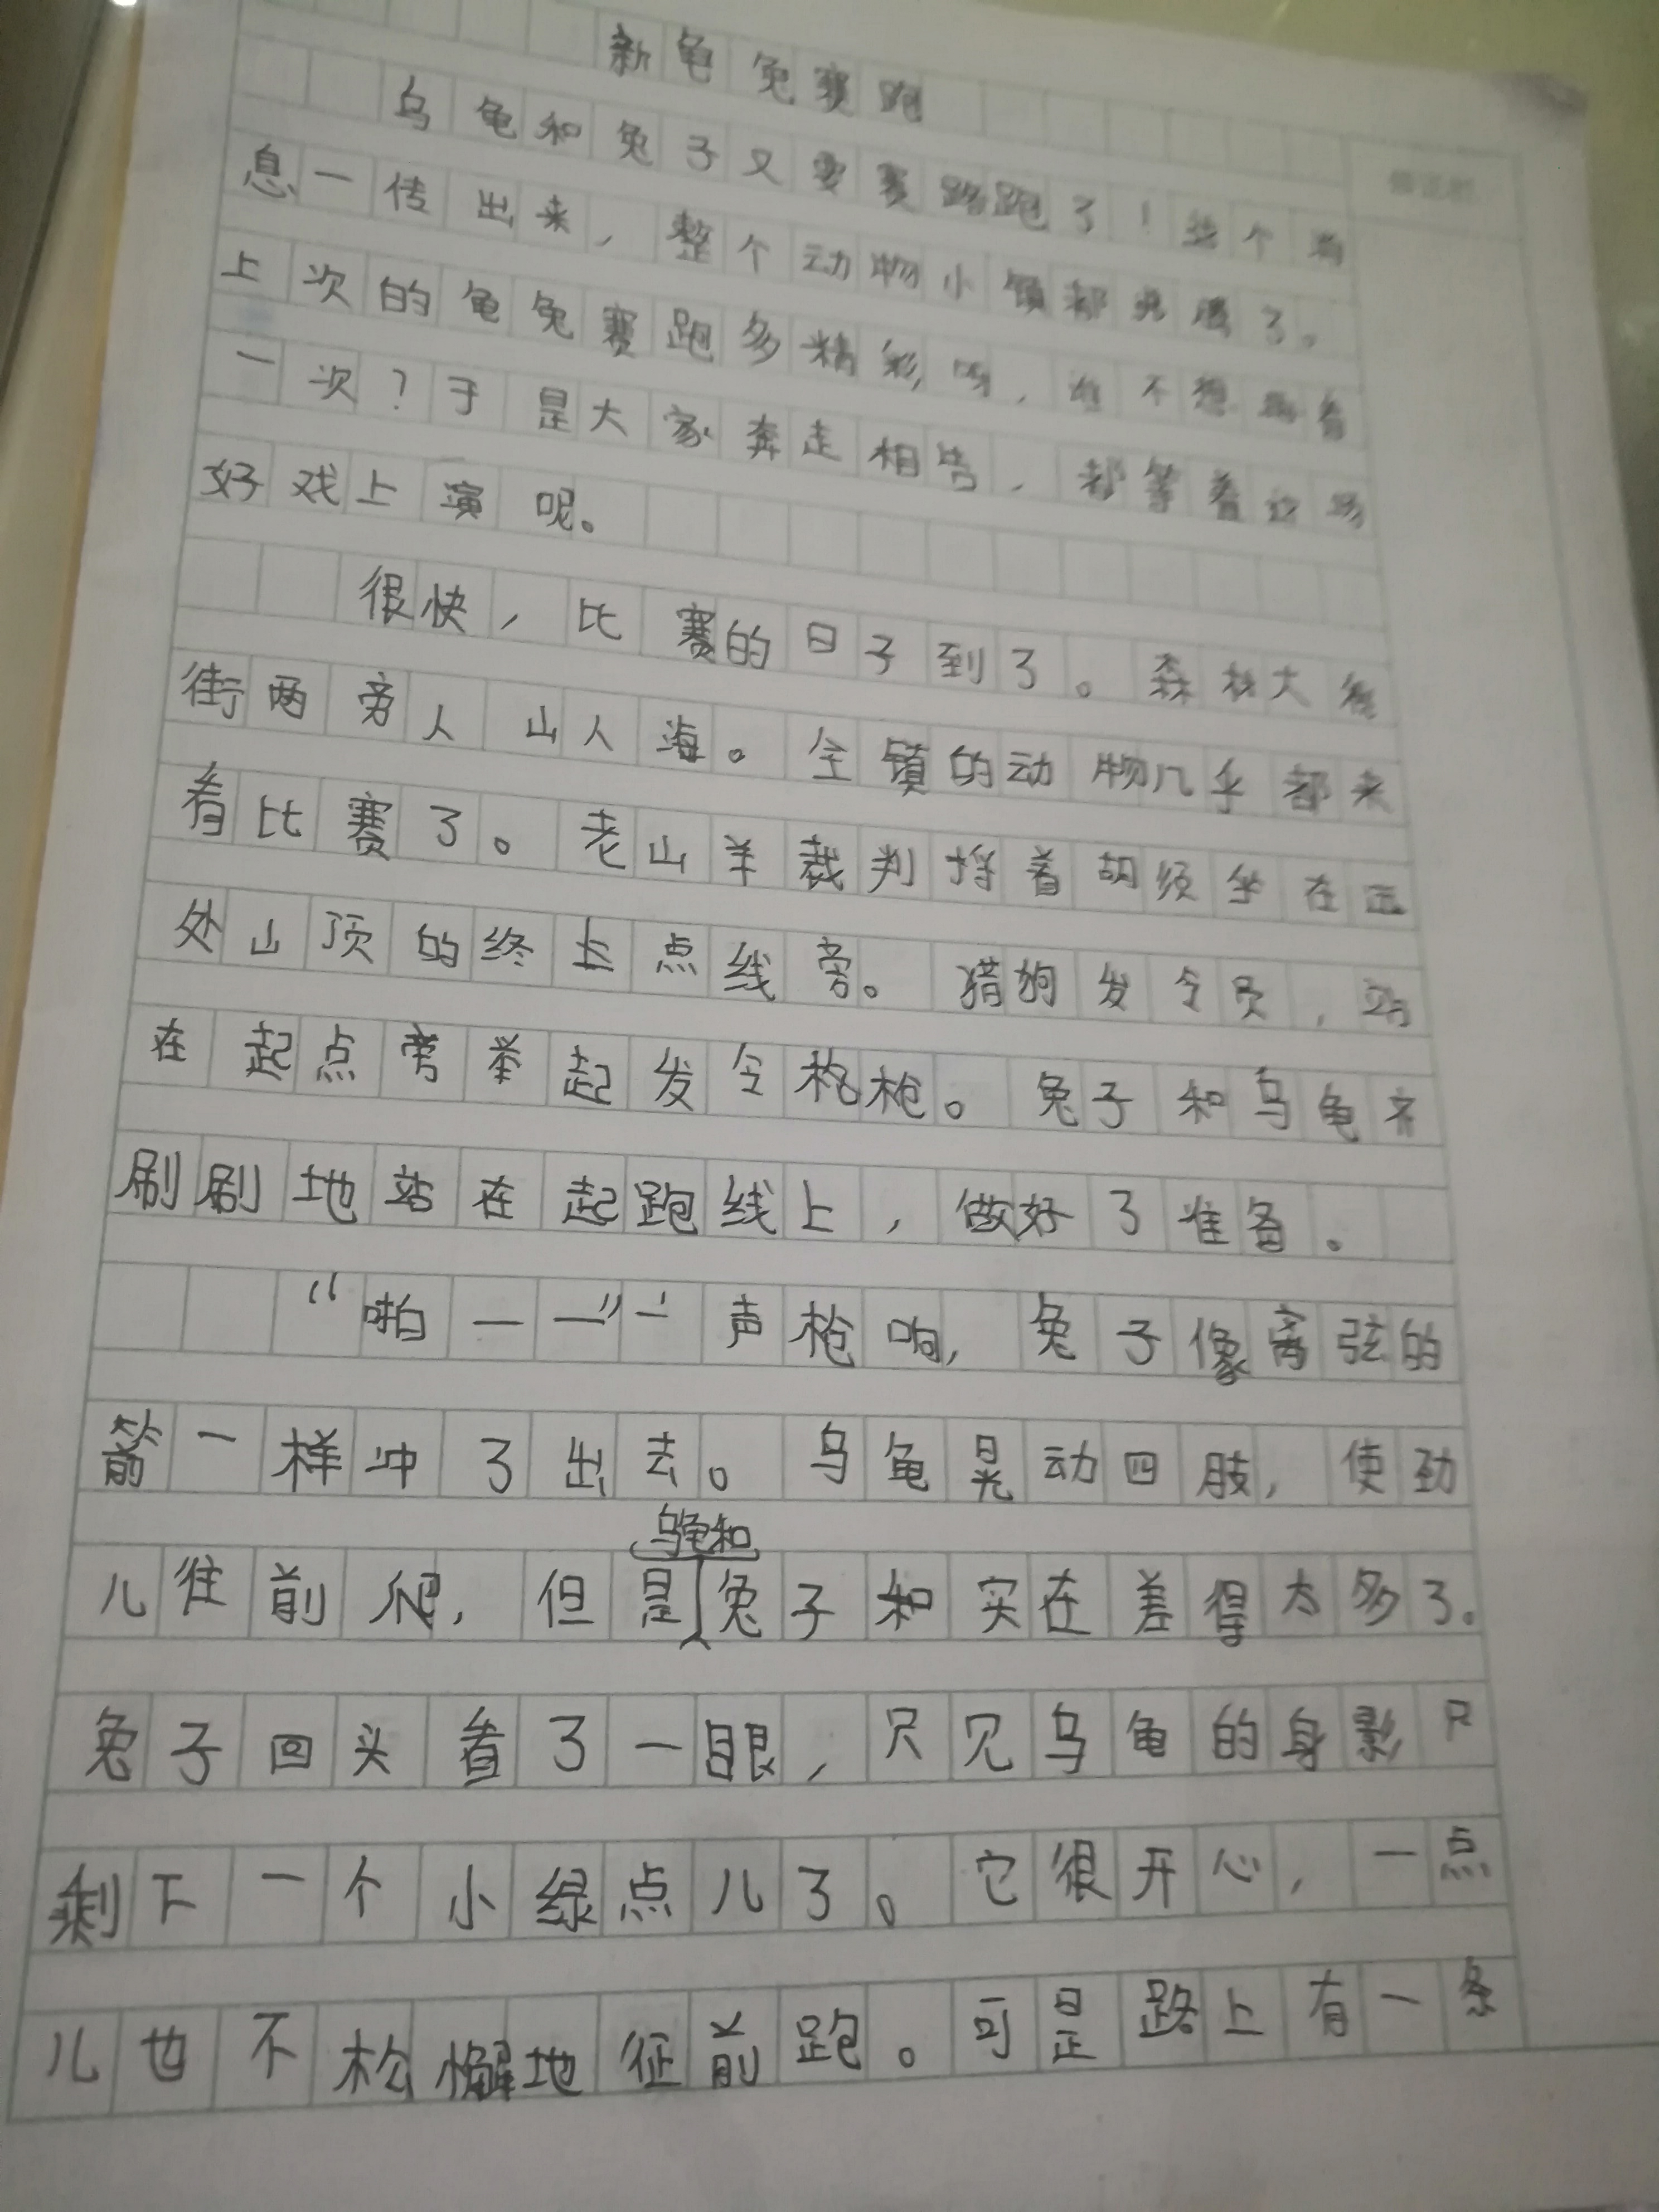 新龟兔赛跑
乌龟和兔子又要赛跑了！这个消
息一传出来，整个动物小镇都沸腾了。
上次的龟兔赛跑多精彩呀，谁不想再看
一次？于是大家奔走相告，都等着这场
好戏上演呢。
很快，比赛的日子到了。森林大
街两旁人山人海。全镇的动物几乎都来
看比赛了。老山羊裁判捋着胡须坐在远
处山顶的终点线旁。猎狗发令员，站
在起点旁举起发令枪。兔子和乌龟齐
刷刷地站在起跑线上，做好了准备。
“啪——”一声枪响，兔子像离弦的
箭一样冲了出去。乌龟晃动四肢，使劲
儿往前爬，但是乌龟和兔子和实在差得太多了。
兔子回头看了一眼，只见乌龟的身影只
剩下一个小绿点儿了。它很开心，一点
儿也不松懈地往前跑。可是路上有一条